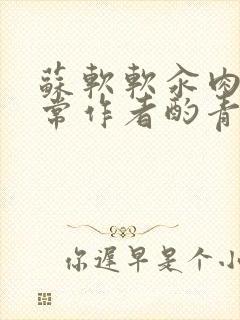 蘇軟軟汆肉
常作者酌青
你遲早是个小